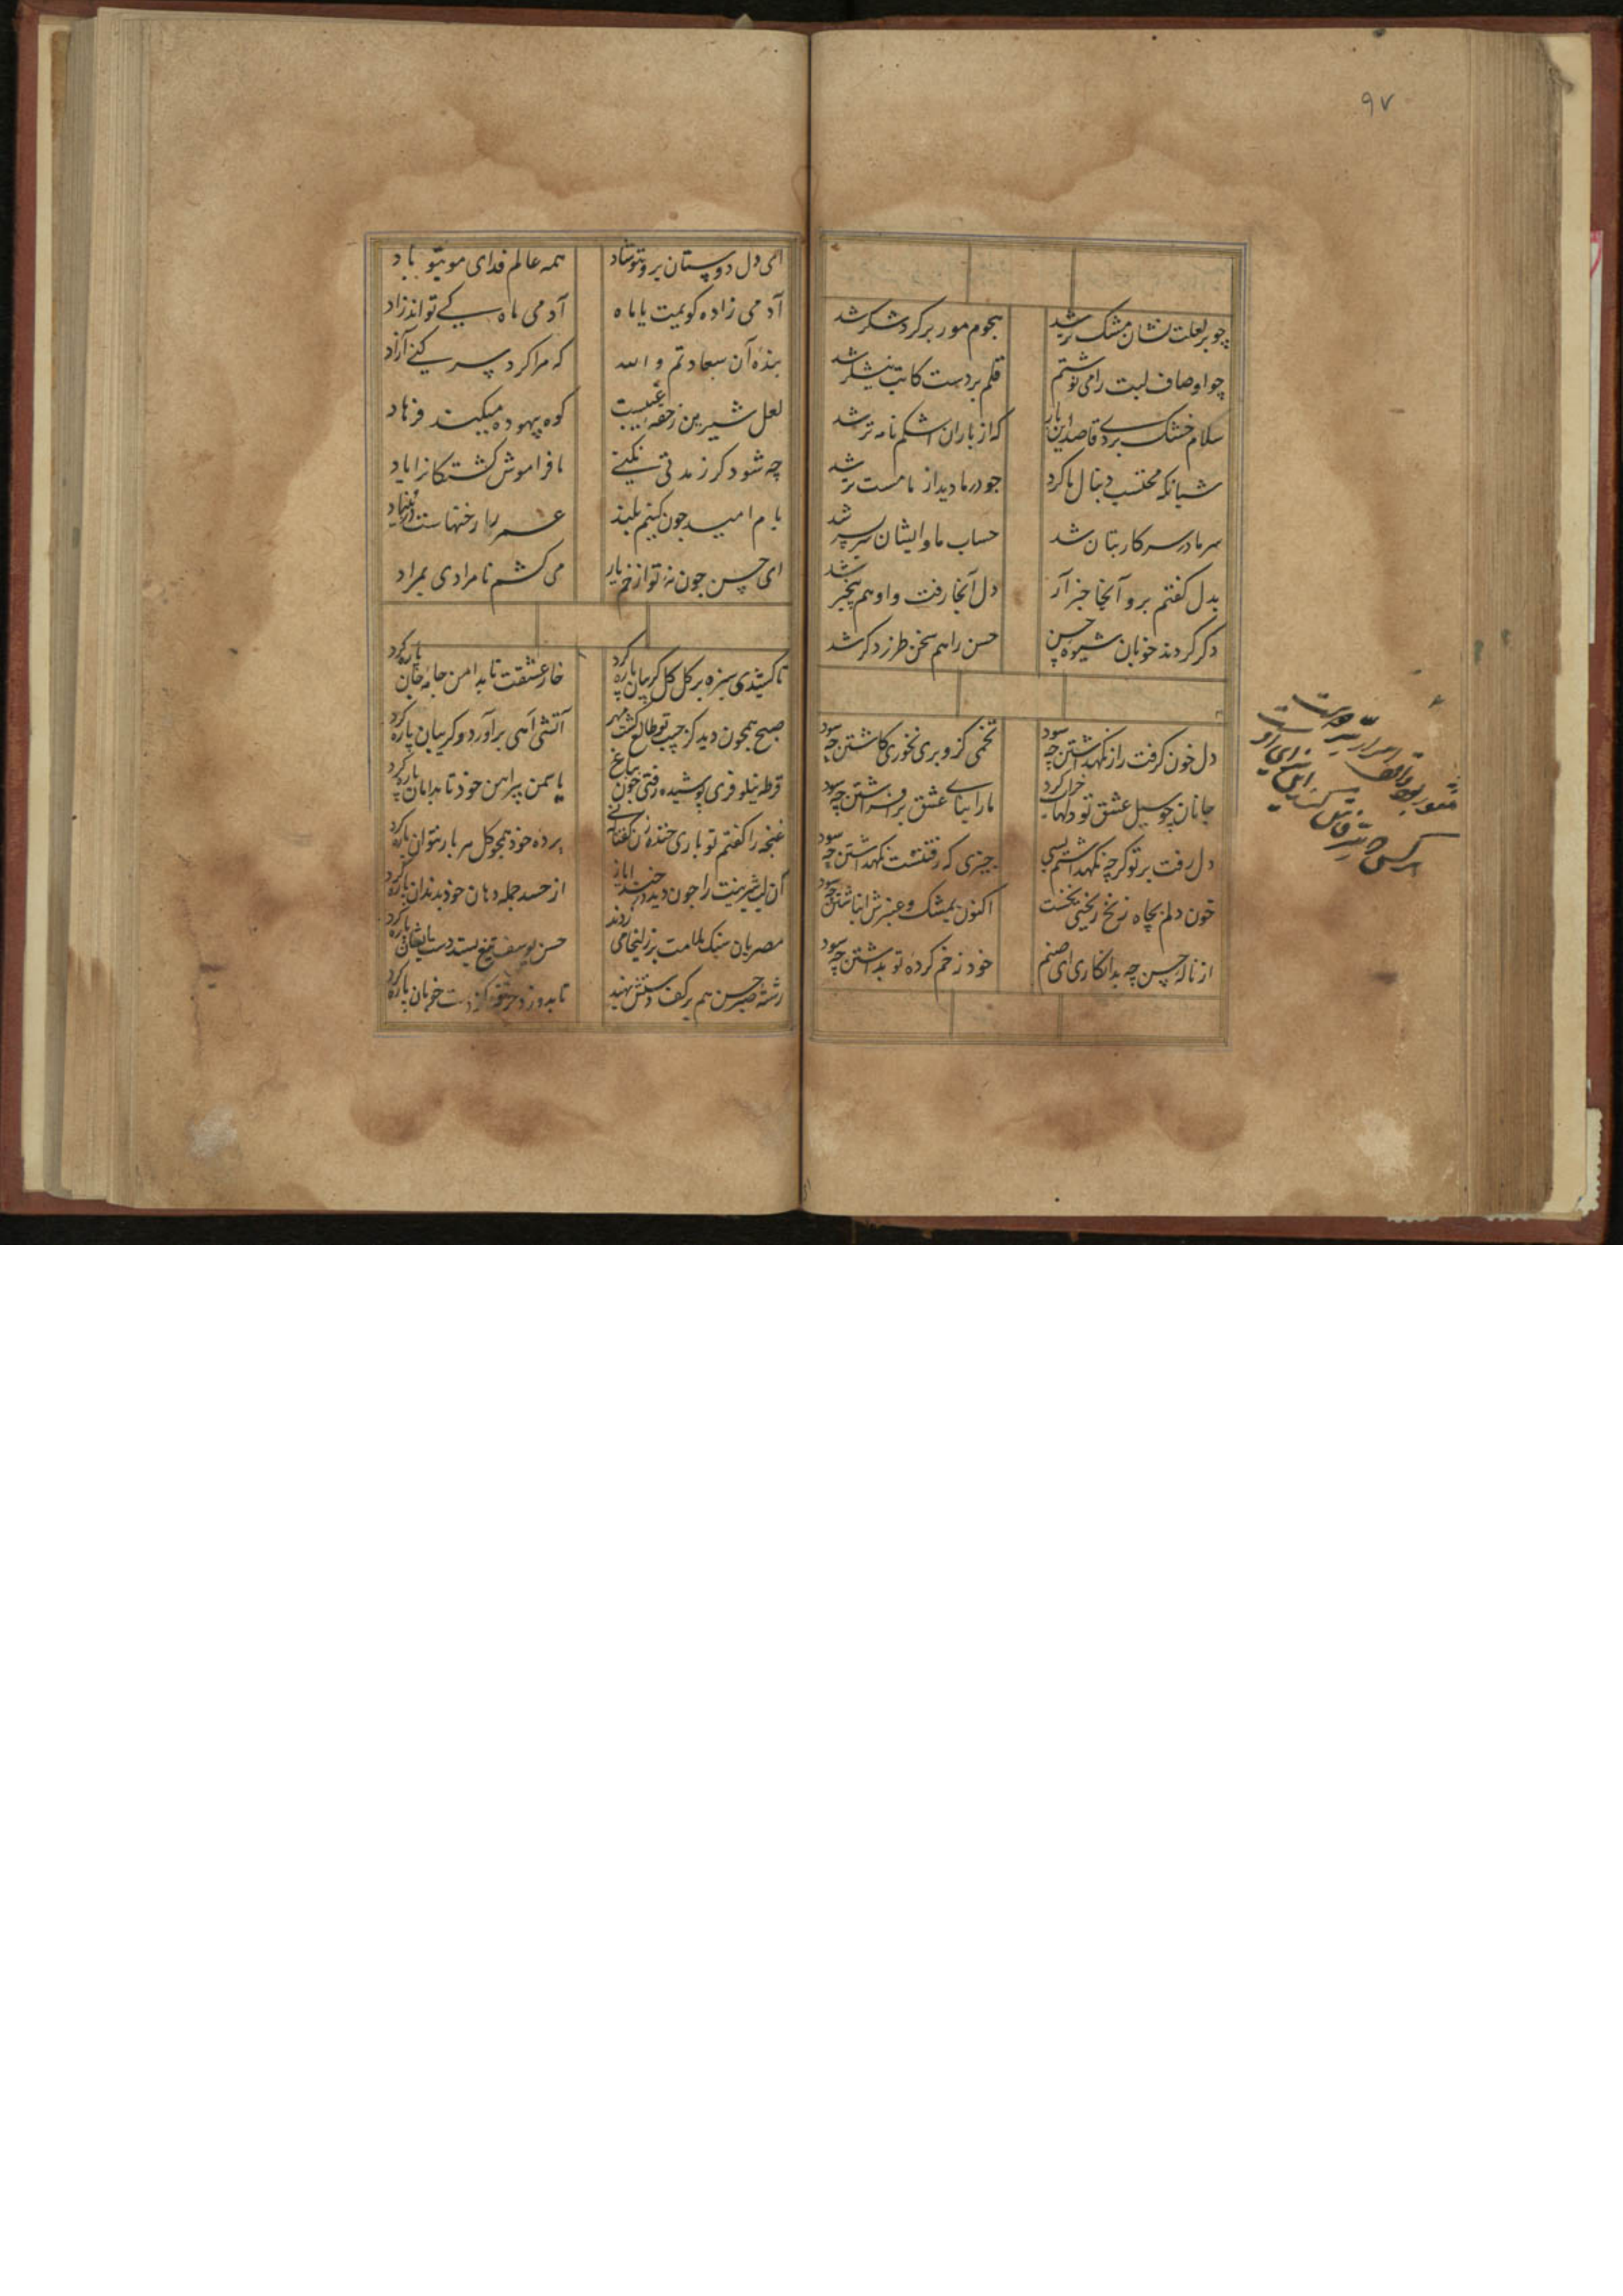 ۹۷
چو بر لعلت نشان مشک تر شد هجوم مور بر گرد شکر شد
چو اوصاف لبت را می نوشتم قلم بر دست کاتب نیشکر شد
سلام خشک بردی قاصد این بار که از باران اشکم نامه تر شد
شبانکه محتسب دنبال ما کرد چو در ما دید از ما مست تر شد
سر ما در سر کار بتان شد حساب ما و ایشان سربسر شد
بدل کفتم برو آنجا خبر آر دل آنجا رفت و او هم بیخبر شد
دکر کردند خوبان شیوه حسن حسن را هم سخن طرز دکر شد
دل خون کرفت راز نکهداشتن چه سود تخمی کزو بری نخوری کاشتن چه سود
جانان چو سیل عشق تو دلها خراب کرد ما را بنای عشق برافراشتن چه سود
دل رفت بر تو کرچه نکهداشتم بسی چیزی که رفتنیست نکهداشتن چه سود
خون دلم بچاه زنخ ریختی نخست اکنون بمشک و عنبرش انباشتن چه سود
از ناله حسن چه بد انکاری ای صنم خود زخم کرده تو بد انکاشتن چه سود
ای دل دوستان بروی تو شاد همه عالم فدای موی تو باد
آدمی زاده کویمت یا ماه آدمی ماه کی تواند زاد
بنده آن سعادتم والله که مرا کرد پس کنی آزاد
لعل شیرین ز حقه غیبست کوه بیهوده میکند فرهاد
چه شود کر ز مدتی نکنی ما فراموش کشتکانرا یاد
بام امید چون کنیم بلند عمر را رخنهاست در بنیاد
ای حسن چون نه تو از خم یار می کش نامرادی بمراد
تا کشیدی سبزه بر کل کل کریبان پاره کرد خار عشقت تا بدامن جامه جان پاره کرد
صبح همچون دید کز جیب تو طالع کشت مهر آتشی آهی برآورد و کریبان پاره کرد
قرطه نیلوفری پوشیده رفتی چون بباغ یاسمن پیراهن خود تا بدامان پاره کرد
غنچه را کفتم تو باری خنده زن کفتا که نی پرده خود همچو کل هر بار نتوان پاره کرد
آن لب شیرینت را چون دید از حسد جمله دهان خود بدندان پاره کرد
مصریان سنک ملامت بر زلیخا می زدند حسن یوسف تیغ بستد دست ایشان پاره کرد
رشته صبر حسن هم بر کف دستش نهید تا بدوزد خرقه کز دست خوبان پاره کرد